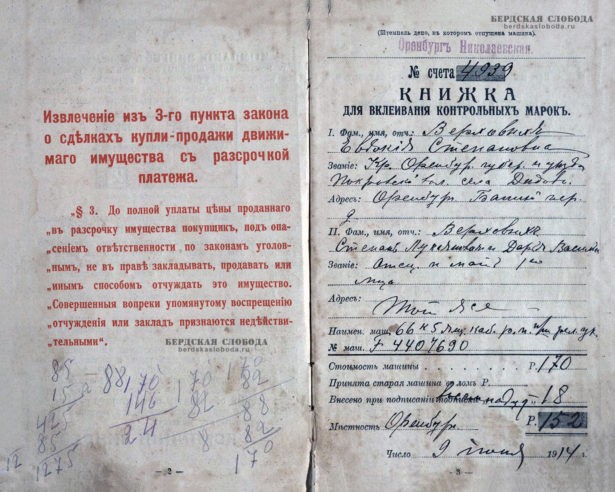 Извлеченіе изъ 3-го пункта закона
о сдѣлкахъ купли-продажи движи-
маго имущества съ разсрочкой
платежа.
„§ 3. До полной уплаты цѣны проданнаго
„въ разсрочку имущества покупщикъ, подъ опа-
„сеніемъ отвѣтственности по законамъ уголов-
„нымъ, не въ правѣ закладывать, продавать или
„инымъ способомъ отчуждать это имущество.
„Совершенныя вопреки упомянутому воспрещенію
„отчужденія или закладъ признаются недѣйстви-
„тельными“.
БЕРДСКАЯ СЛОБОДА
berdskasloboda.ru
85
15
425
85
12 1275
88,170
146
24
170
82
88
82
88
82
170
— 2 —
БЕРДСКАЯ СЛОБОДА
berdskasloboda.ru
(Штемпель депо, въ которомъ отпущена машина).
Оренбургъ Николаевская.
№ счета 4939
КНИЖКА
ДЛЯ ВКЛЕИВАНІЯ КОНТРОЛЬНЫХЪ МАРОКЪ.
I. Фам., имя, отч.: Верховыхъ
Евдокія Степановна
Званіе: Кр. Оренбур. губер. и уѣзда
Покровской вол. села Дѣдово
Адресъ: Оренбург Банный пер.
II. Фам., имя, отч.: Верховыхъ
Степанъ Дарья
Званіе: Отец и мать 1го
лица
Адресъ: Той же
Наимен. маш. 66 К 5 ящ.
№ маш. F 4407690
Стоимость машины Р. 170
Принята старая машина въ ломъ Р.
Внесено при подписаніи 18
Р. 152
Мѣстность Оренбург.
Число 9 1914 г.
— 3 —